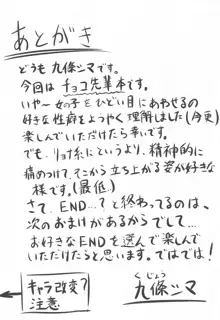 あとがき
どうも九條シマです。
今回はチョコ先輩本です。
いや〜女の子をひどい目にあわせるの
好きな性癖をようやく理解しました(今更)
楽しんでいただけたら幸いです。
でも、リョナ系にというより、精神的に
痛めつけて、そこから立ち上がる姿が好きな
様です。(最低)
さて、END…?で終わってるのは、
次のおまけがあるからでして…
お好きなENDを選んで楽しんで
いただけたらと思います。ではでは!
くじょう
九條シマ
キャラ改変?
注意